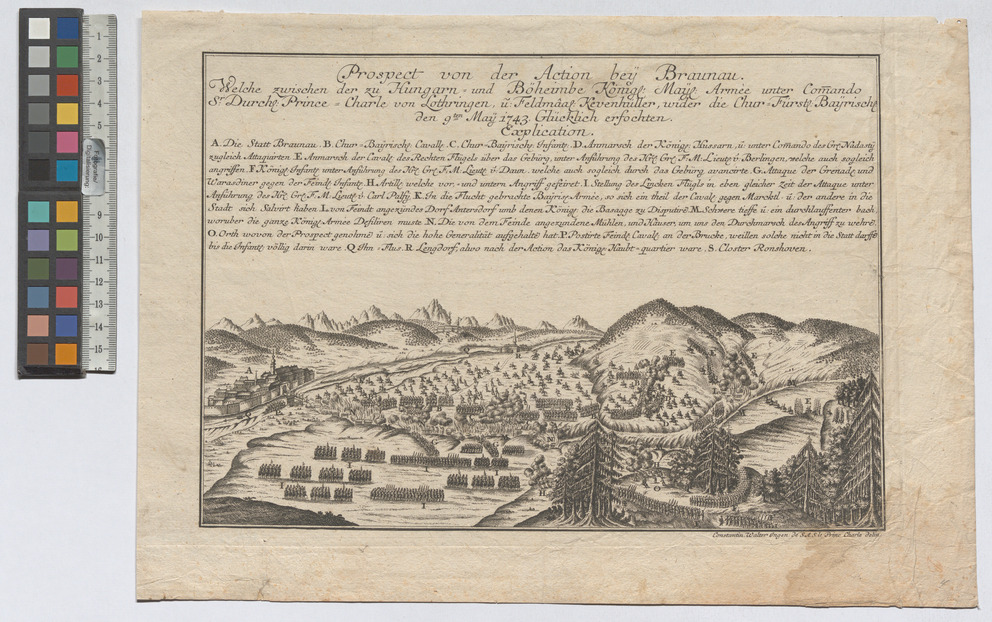 Prospect von der Action beÿ Braunau.
Welche zwischen der zu Hungarn- und Böheimbe Königl: Maÿt: Armée unter Com̄ando
Sr. Durchl: Prince = Charle von Lothringen, ü. Feldmaa Kevenhüller, wider die Chur = Fürstl: Baÿrische
den 9ten Maÿ 1743. Glücklich erfochten.
Explication.
A. Die Statt Braunau. B. Chur = Baÿrisch: Cavall: C. Chur = Baÿrisch: Infant: D. Anmarsch der Königl: Hussarn, ü: unter Com̄ando des Grf: Nadasti
zugleich Attaquirten. E. Anmarsch der Caval: des Rechten Flügels über das Gebürg, unter Anführung des Grf: F. M. Lieut: v: Berlingen, welche auch sogleich
angriffen. F. Königl: Infant: unter Anführung des Grf: F. M. Lieut: v: Daun, welche auch sogleich durch das Gebürg avancirte. G. Attaque der Grenad: und
Warasdiner gegen der Feindl: Infant: H. Artill: welche vor- und untern Angriff gefeiret. I. Stellung des Lincken Flügls in eben gleicher zeit der Attaque unter
Anführung des Grf: F. M. Lieut: v: Carl Palfÿ. K. In die Flucht gebrachte Baÿrise Armée, so sich ein theil der Caval: gegen Marcktl ü: der andere in die
Stadt sich Salvirt haben. L. von Feindt angezindes Dorf Antersdorf umb denen Königl: die Basage zu Disputirē. M. Schwere tieffe ü: ein durchlauffenter bach,
worüber die ganze Königl: Armée Defiliren muste. N. Die von dem Feinde angezindene Mühlen, und Häuser, um uns den Durchmarsch des Angriff zu wehrē
O. Orth wovon der Prospect genohmē ü: sich die hohe Generalitüt aufgehaltē hat. P. Postirte Feindl: Caval: an der Brucke, weillen solche nicht in die Statt darfft
bis die Infant: völlig darin ware. Q. Iñn = Flus. R. Lengdorf, alwo nach der Action das Königl: Haubt = quartier ware, S. Closter Ronshoven.
Constantin Walter Ingen: de S. A. S. le Prince Charle delin: